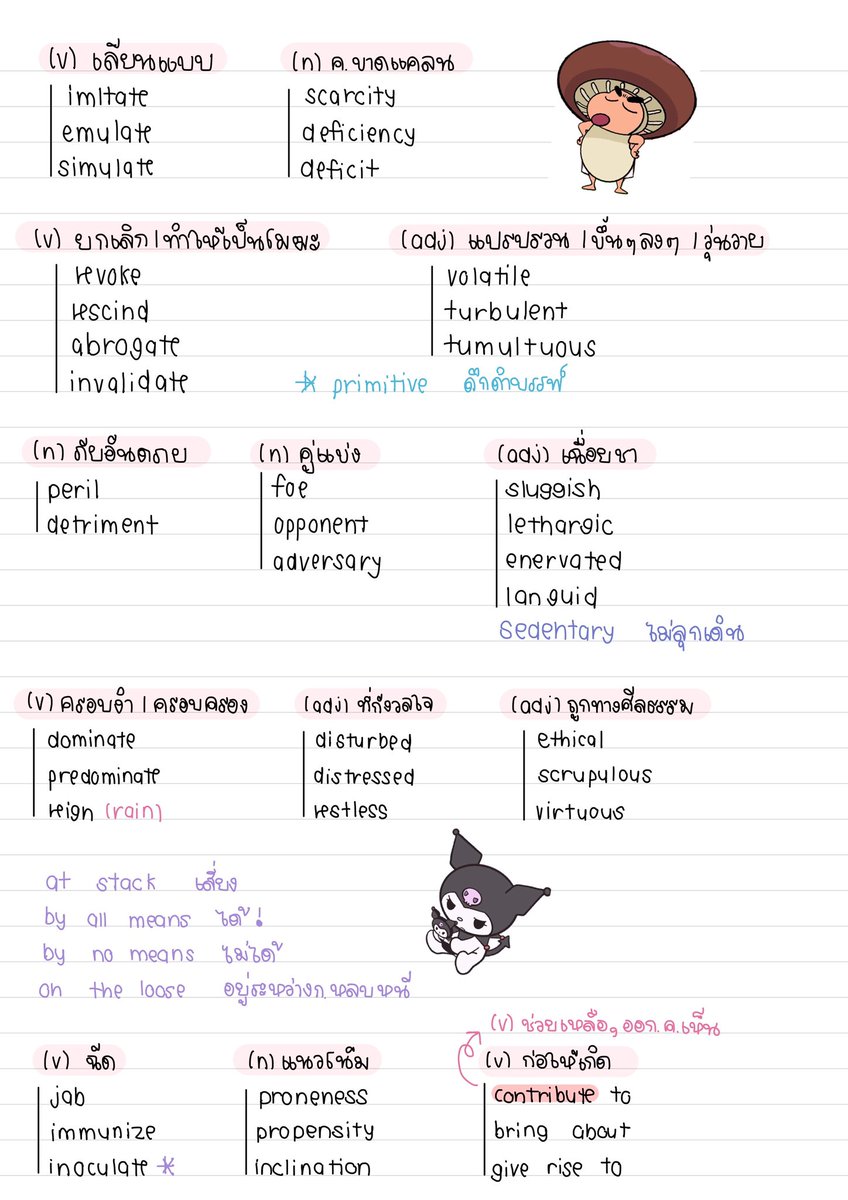 (v) เลียนแบบ
imitate
emulate
simulate
(n) ค.ขาดแคลน
scarcity
deficiency
deficit
(v) ยกเลิก / ทำให้เป็นโมฆะ
revoke
rescind
abrogate
invalidate
(adj) แปรปรวน / ขึ้นๆลงๆ / วุ่นวาย
volatile
turbulent
tumultuous
* primitive ดึกดำบรรพ์
(n) ภัยอันตราย
peril
detriment
(n) คู่แข่ง
foe
opponent
adversary
(adj) เฉื่อยชา
sluggish
lethargic
enervated
languid
sedentary ไม่ลุกเดิน
(v) ครอบงำ / ครอบครอง
dominate
predominate
reign (rain)
(adj) ที่กังวลใจ
disturbed
distressed
restless
(adj) ถูกทางศีลธรรม
ethical
scrupulous
virtuous
at stack เสี่ยง
by all means ได้!
by no means ไม่ได้
on the loose อยู่ระหว่างก.หลบหนี
(v) ฉีด
jab
immunize
inoculate *
(n) แนวโน้ม
proneness
propensity
inclination
(v) ช่วยเหลือ, ออก.ค.เห็น
(v) ก่อให้เกิด
contribute to
bring about
give rise to